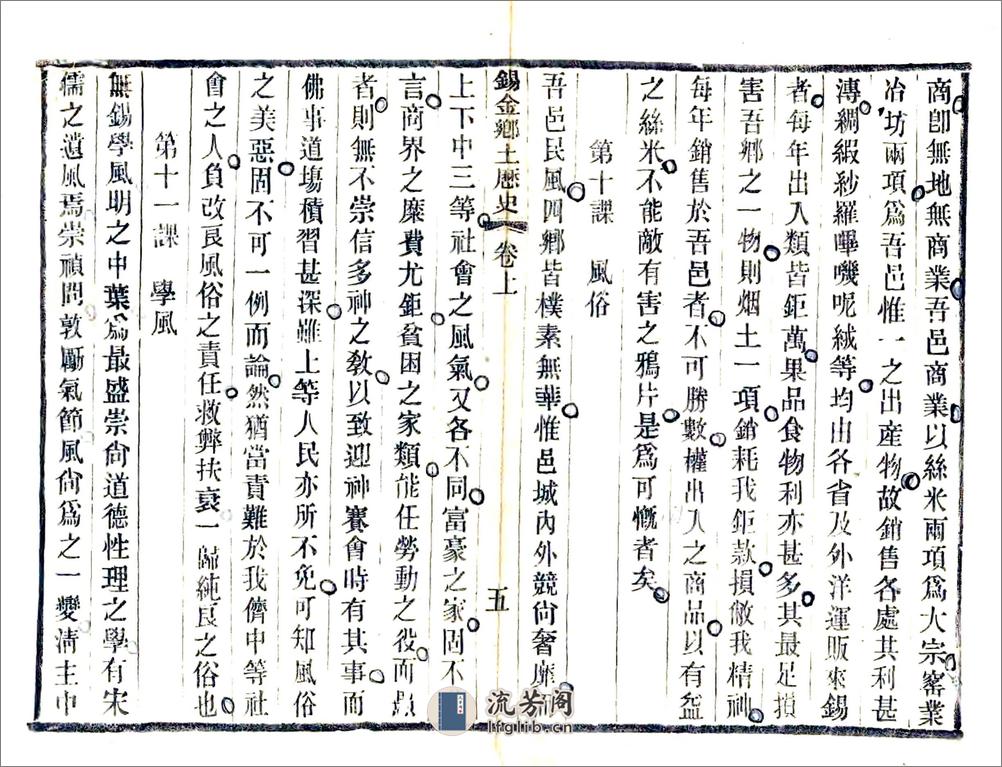 商卽無地無商業吾邑商業以絲米兩項爲大宗窰業
冶坊兩項爲吾邑惟一之出産物故銷售各處其利甚
溥綢緞紗羅嗶嘰呢絨等均由各省及外洋運販來錫
者每年出入類皆鉅萬果品食物利亦甚多其最足損
害吾鄉之一物則烟土一項銷耗我鉅款損傲我精神
每年銷售於吾邑者不可勝數權出入之商品以有益
之絲米不能敵有害之鴉片是爲可慨者矣
第十課　風俗
吾邑民風四鄉皆樸素無華惟邑城內外競尙奢靡
錫金鄉土歷史　卷上　五
上下中三等社會之風氣又各不同富豪之家固不
言商界之糜費尤鉅貧困之家類能任勞動之役而愚
者則無不崇信多神之敎以致迎神賽會時有其事而
佛事道場積習甚深雖上等人民亦所不免可知風俗
之美惡固不可一例而論然猶當責難於我儕中等社
會之人負改良風俗之責任救弊扶衰一歸純良之俗也
第十一課　學風
無錫學風明之中葉爲最盛崇尙道德性理之學有宋
儒之遺風焉崇禎間敦勵氣節風尙爲之一變淸主中
流芳阁
lfglib.com